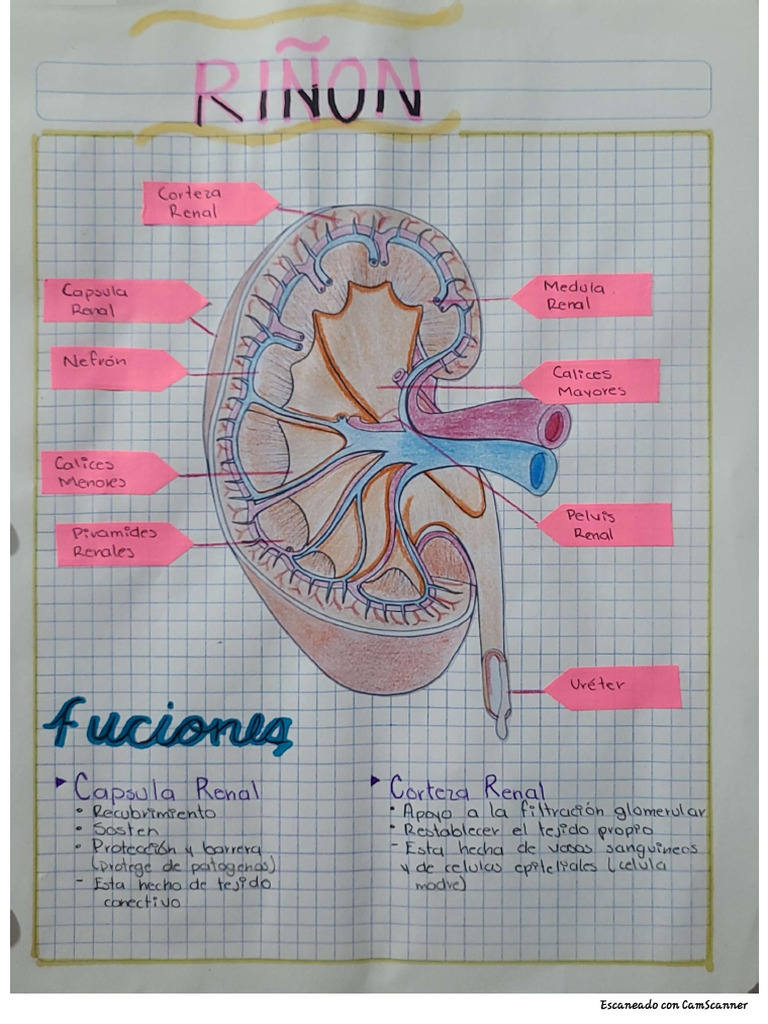 RIÑON
Corteza
Renal
Capsula
Renal
Nefrón
Calices
Menores
Piramides
Renales
Medula
Renal
Calices
Mayores
Pelvis
Renal
Uréter
fuciones
Capsula Renal
• Recubrimiento
• Sosten
• Protección y barrera
(protege de patogenos)
- Esta hecho de tejido
conectivo
Corteza Renal
• Apoyo a la filtración glomerular
• Restablecer el tejido propio
- Esta hecha de vasos sanguineos
y de celulas epiteliales (celula
madre)
Escaneado con CamScanner